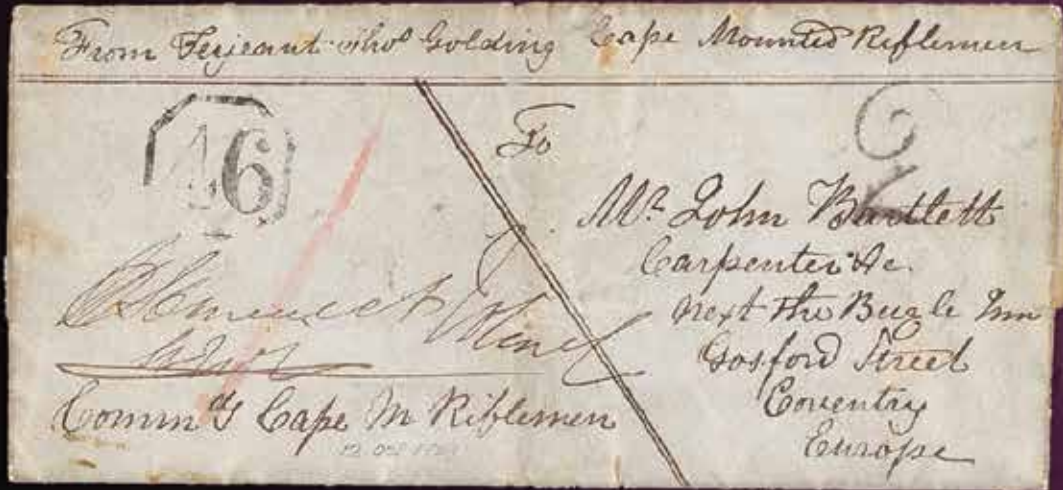 From Serjeant Thos Golding Cape Mounted Riflemen
46
To
Mr John Bartlett
Carpenter &c.
next the Bugle Inn
Gosford Street
Coventry
Europe
Comm'g Cape M Riflemen
12 Oct